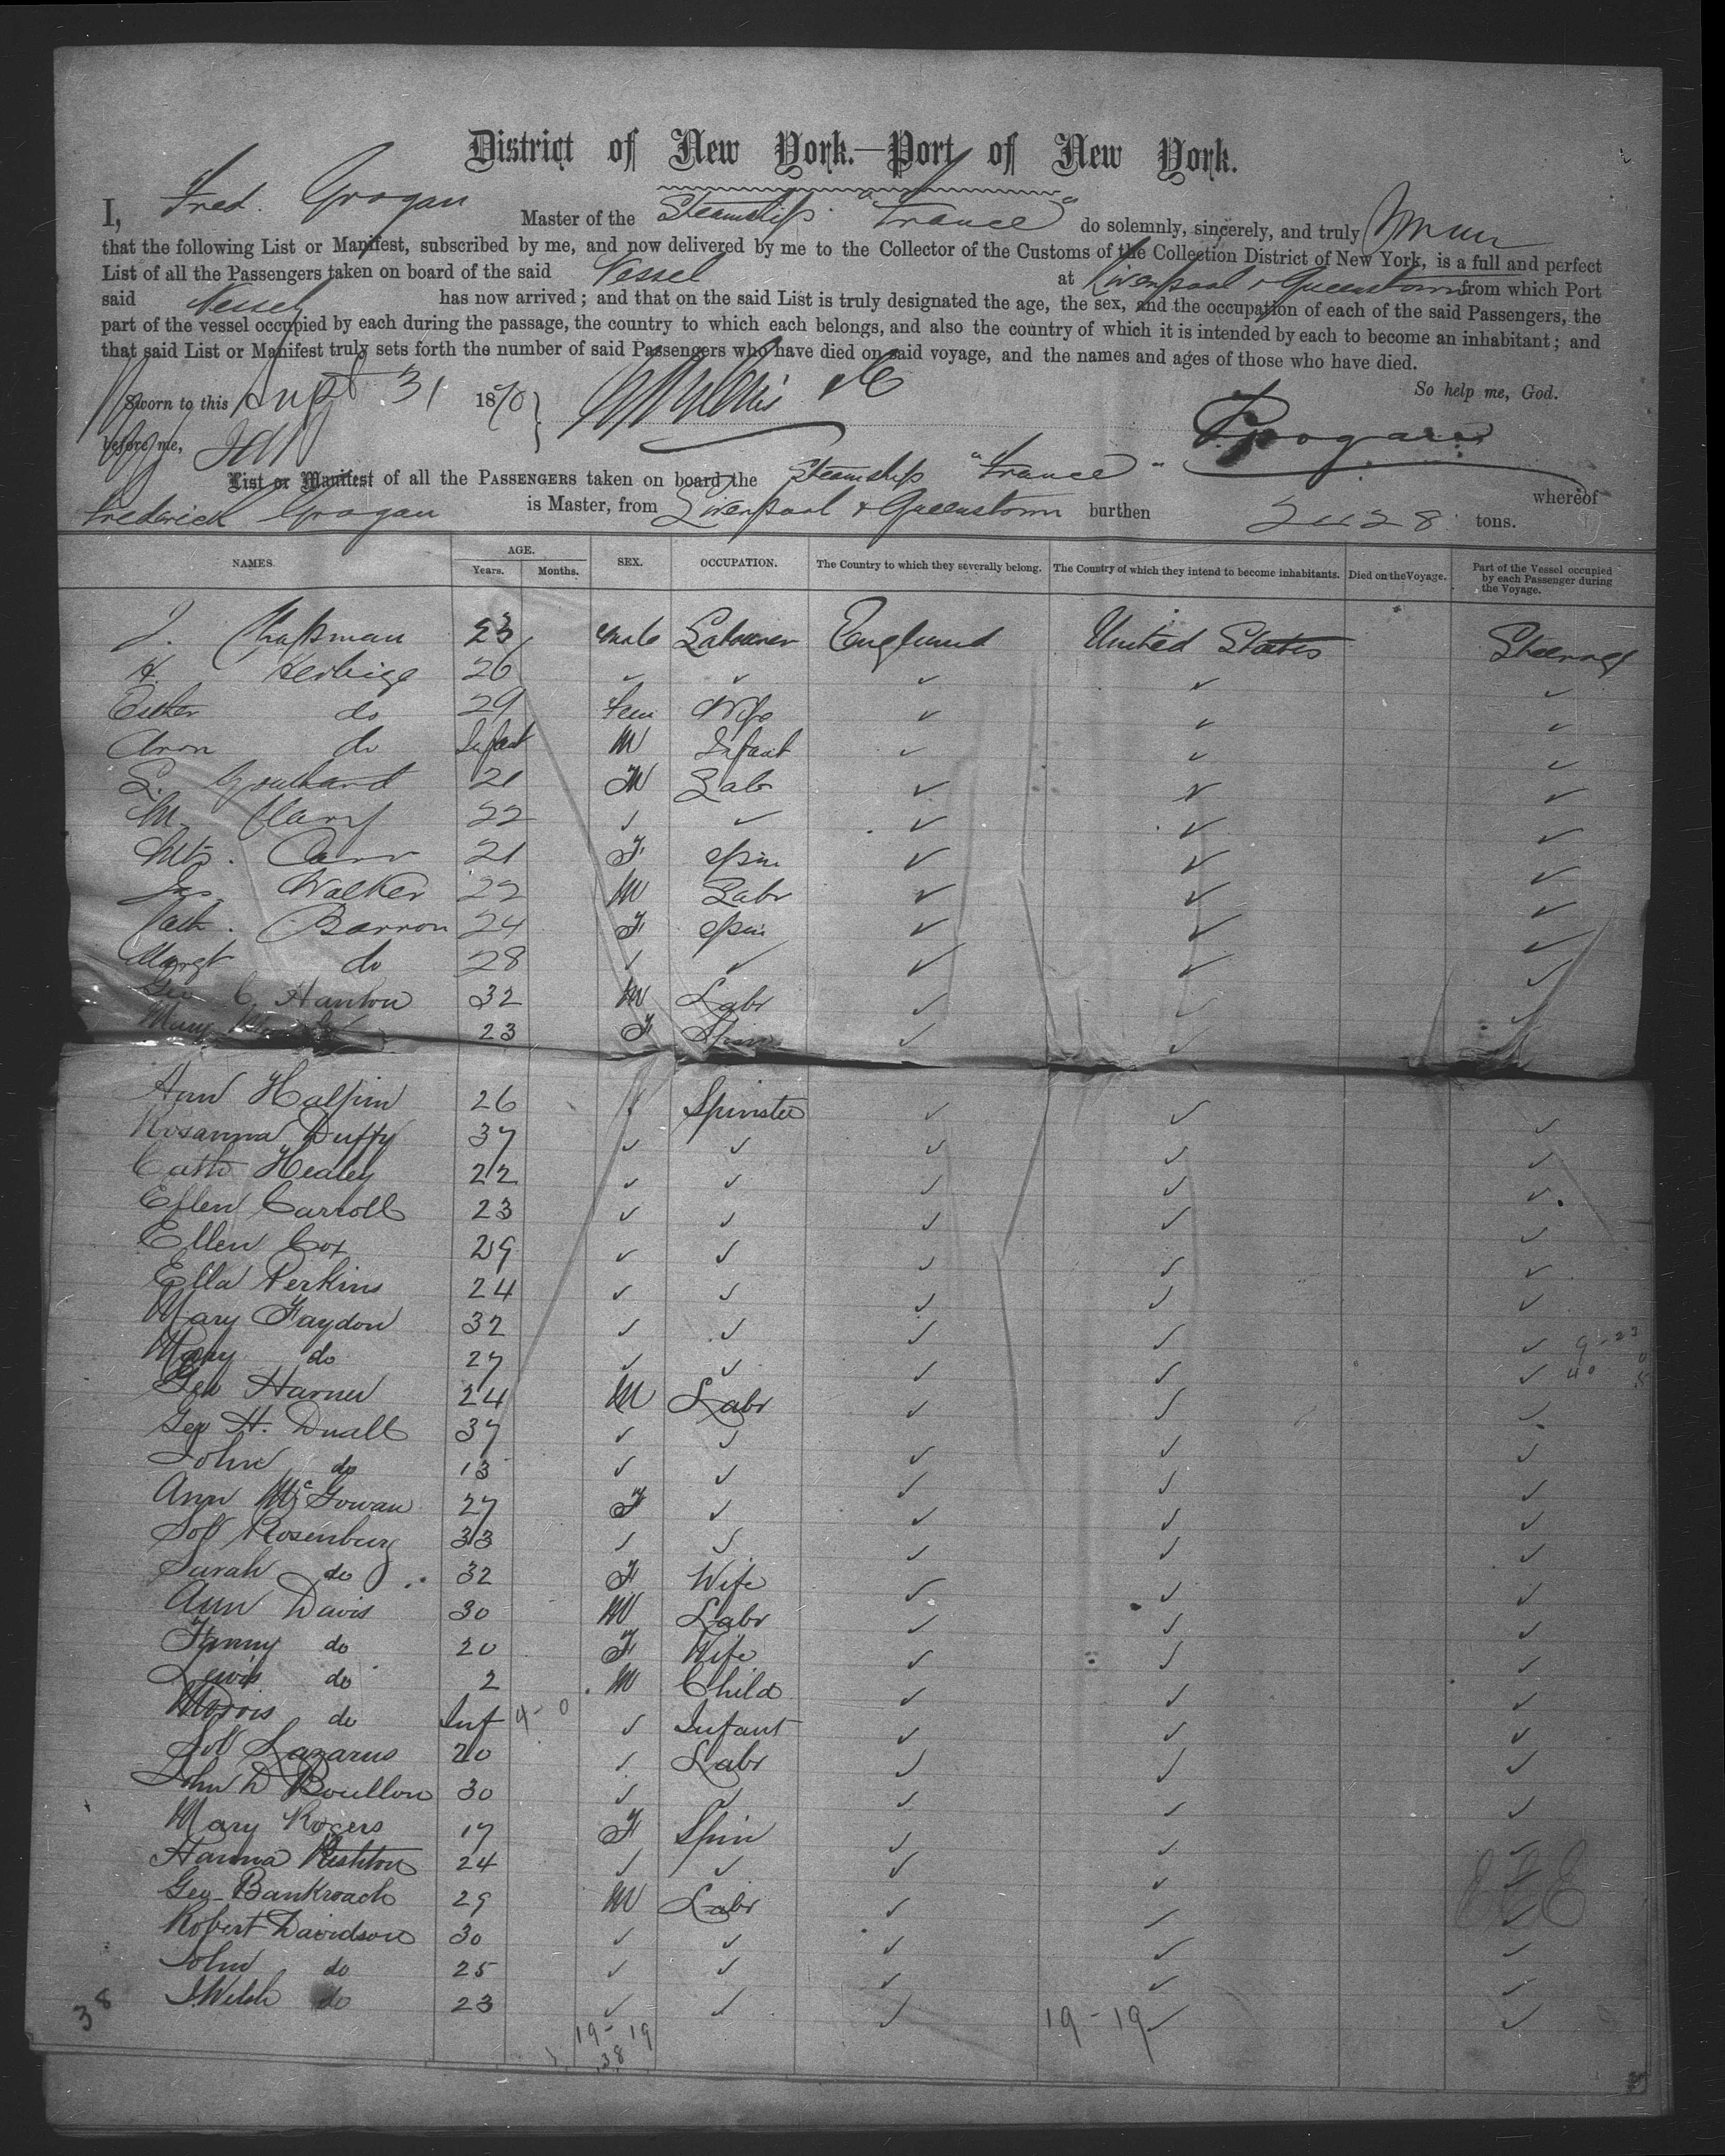 District of New York.—Port of New York.
I, Fred. Grogan Master of the Steamship "France" do solemnly, sincerely, and truly
that the following List or Manifest, subscribed by me, and now delivered by me to the Collector of the Customs of the Collection District of New York, is a full and perfect
List of all the Passengers taken on board of the said Vessel at Liverpool & Queenstown from which Port
said Vessel has now arrived; and that on the said List is truly designated the age, the sex, and the occupation of each of the said Passengers, the
part of the vessel occupied by each during the passage, the country to which each belongs, and also the country of which it is intended by each to become an inhabitant; and
that said List or Manifest truly sets forth the number of said Passengers who have died on said voyage, and the names and ages of those who have died.
So help me, God.
Sworn to this Augt 31 1870
before me,
F Grogan
List or Manifest of all the PASSENGERS taken on board the Steamship "France" whereof
Frederick Grogan is Master, from Liverpool & Queenstown burthen 2428 tons.
NAMES. AGE. Years. Months. SEX. OCCUPATION. The Country to which they severally belong. The Country of which they intend to become inhabitants. Died on the Voyage. Part of the Vessel occupied by each Passenger during the Voyage.
J. Chapman 23 male Labourer England United States Steerage
H. 26 ✓ ✓ ✓ ✓ ✓
Esther do 29 Fem Wife ✓ ✓ ✓
Aron do Infant M Infant ✓ ✓ ✓
S. 21 M Labr ✓ ✓ ✓
M. 22 ✓ ✓ ✓ ✓ ✓
Carr 21 F Spin ✓ ✓ ✓
Jas. Walker 22 M Labr ✓ ✓ ✓
Cath. Barron 24 F Spin ✓ ✓ ✓
Margt do 28 ✓ ✓ ✓ ✓ ✓
Geo C. Hanlon 32 M Labr ✓ ✓ ✓
Mary 23 F Spin ✓ ✓
Ann Halpin 26 ✓ Spinster ✓ ✓ ✓
Rosanna Duffy 37 ✓ ✓ ✓ ✓ ✓
Cath Healey 22 ✓ ✓ ✓ ✓ ✓
Ellen Carroll 23 ✓ ✓ ✓ ✓ ✓
Ellen Cox 29 ✓ ✓ ✓ ✓ ✓
Ella Perkins 24 ✓ ✓ ✓ ✓ ✓
Mary Faydon 32 ✓ ✓ ✓ ✓ ✓
Mary do 27 ✓ ✓ ✓ ✓ ✓
Geo Harner 24 M Labr ✓ ✓ ✓
Geo H. Duall 37 ✓ ✓ ✓ ✓ ✓
John do 13 ✓ ✓ ✓ ✓ ✓
Ann McGowan 27 F ✓ ✓ ✓ ✓
Soll Rosenburg 33 ✓ ✓ ✓ ✓ ✓
Sarah do 32 F Wife ✓ ✓ ✓
Ann Davis 30 M Labr ✓ ✓ ✓
Fanny do 20 F Wife ✓ ✓ ✓
Lewis do 2 M Child ✓ ✓ ✓
Morris do Inf ✓ Infant ✓ ✓ ✓
Soll Lazarus 20 ✓ Labr ✓ ✓ ✓
John D Boullon 30 ✓ ✓ ✓ ✓ ✓
Mary Rogers 17 F Spin ✓ ✓ ✓
Hanna Rishton 24 ✓ ✓ ✓ ✓ ✓
Geo Bankroach 29 M Labr ✓ ✓ ✓
Robert Davidson 30 ✓ ✓ ✓ ✓ ✓
John do 25 ✓ ✓ ✓ ✓ ✓
J. Welsh do 23 ✓ ✓ ✓ ✓ ✓
38 19-19 19-19
38